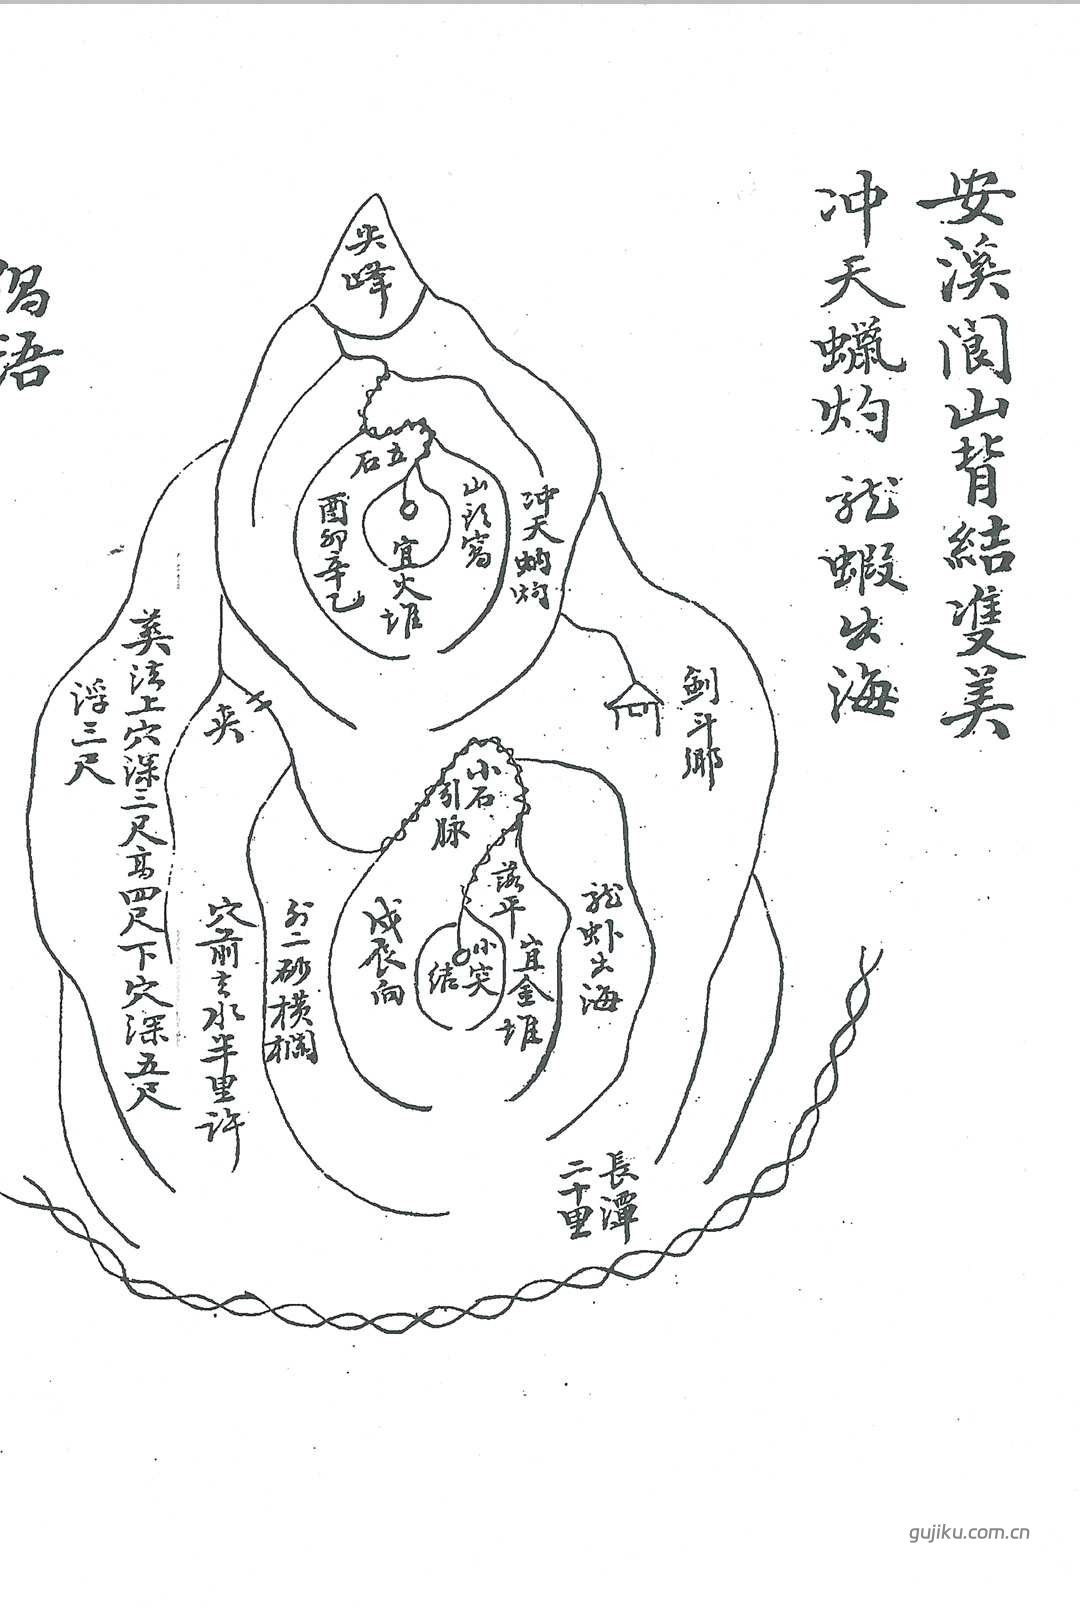 安溪閬山背結雙美
冲天蠟灼 龙蝦出海
尖峰
五石
山頂窩
冲天蜡灼
宜火堆
酉卯辛乙
劍斗鄉
夹
葬法上穴深三尺高四尺下穴深五尺
浮三尺
小石
引脉
落平
宜金堆
龙虾出海
小突
结
戍辰向
外二砂横栏
穴前去水半里許
長潭
二十里
偈语
gujiku.com.cn